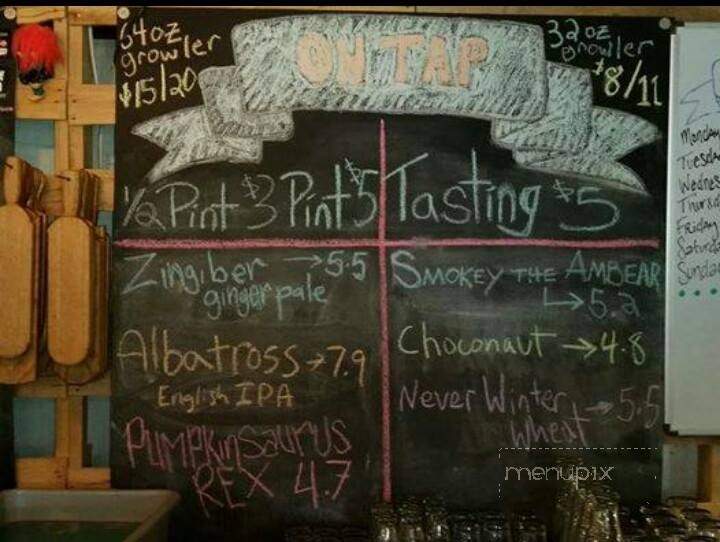 64oz
growler
$15/20
ON TAP
32oz
growler
$8/11
1/2 Pint $3 Pint $5
Tasting $5
Zingiber → 5.5
ginger pale
Albatross → 7.9
English IPA
PUMPKinSauRUS
REX 4.7
SMOKEY THE AMBEAR
↳ 5.2
Choconaut → 4.8
Never Winter → 5.5
Wheat
Monday
Tuesda
Wednes
Thurs
Friday
Saturda
Sunda
menupix